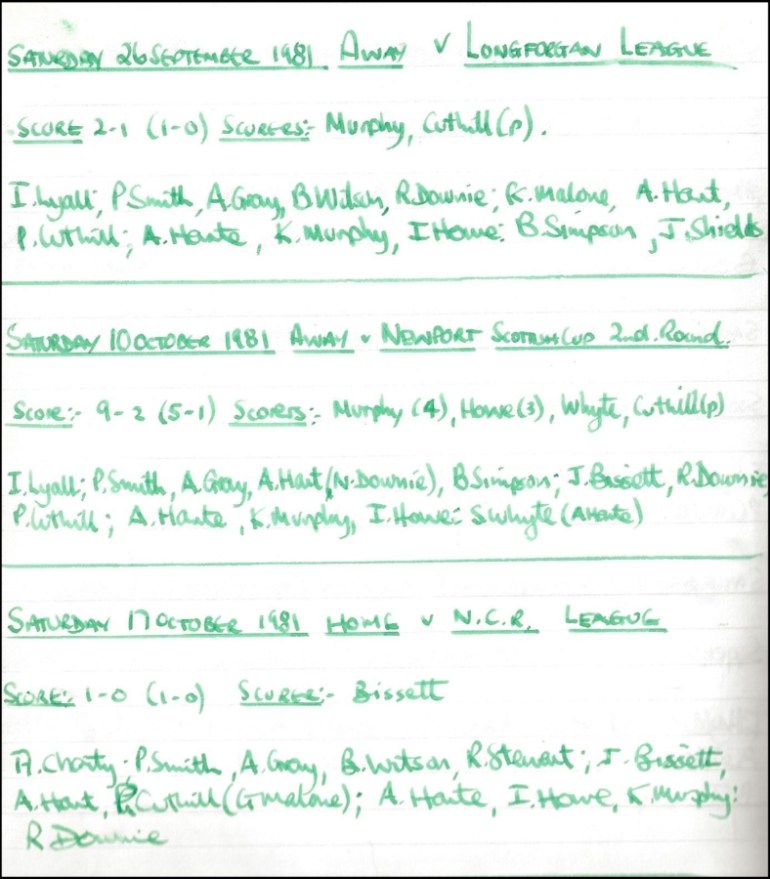 SATURDAY 26 SEPTEMBER 1981 AWAY V LONGFORGAN LEAGUE
SCORE 2-1 (1-0) SCORERS:- Murphy, Cuthill (P).
I. Lyall; P. Smith, A. Gray, B. Wilson, R. Downie; K. Malone, A. Hart,
P. Cuthill; A. Harte, K. Murphy, I Howe: B. Simpson, J. Shields
SATURDAY 10 OCTOBER 1981 AWAY v NEWPORT SCOTTISH CUP 2nd. Round.
Score:- 9-2 (5-1) Scorers:- Murphy (4), Howe (3), Whyte, Cuthill (p)
I. Lyall; P. Smith, A. Gray, A. Hart (N. Downie), B Simpson; J. Bissett, R. Downie
P. Cuthill; A. Harte, K. Murphy, I. Howe: S Whyte (A Harte)
SATURDAY 17 OCTOBER 1981 HOME v N.C.R. LEAGUE
SCORE:- 1-0 (1-0) SCORER:- Bissett
P. Smith, A. Gray, B. Wilson, R. Stewart; J. Bissett,
A. Hart, P. Cuthill (G Malone); A. Harte, I. Howe, K. Murphy:
R Downie